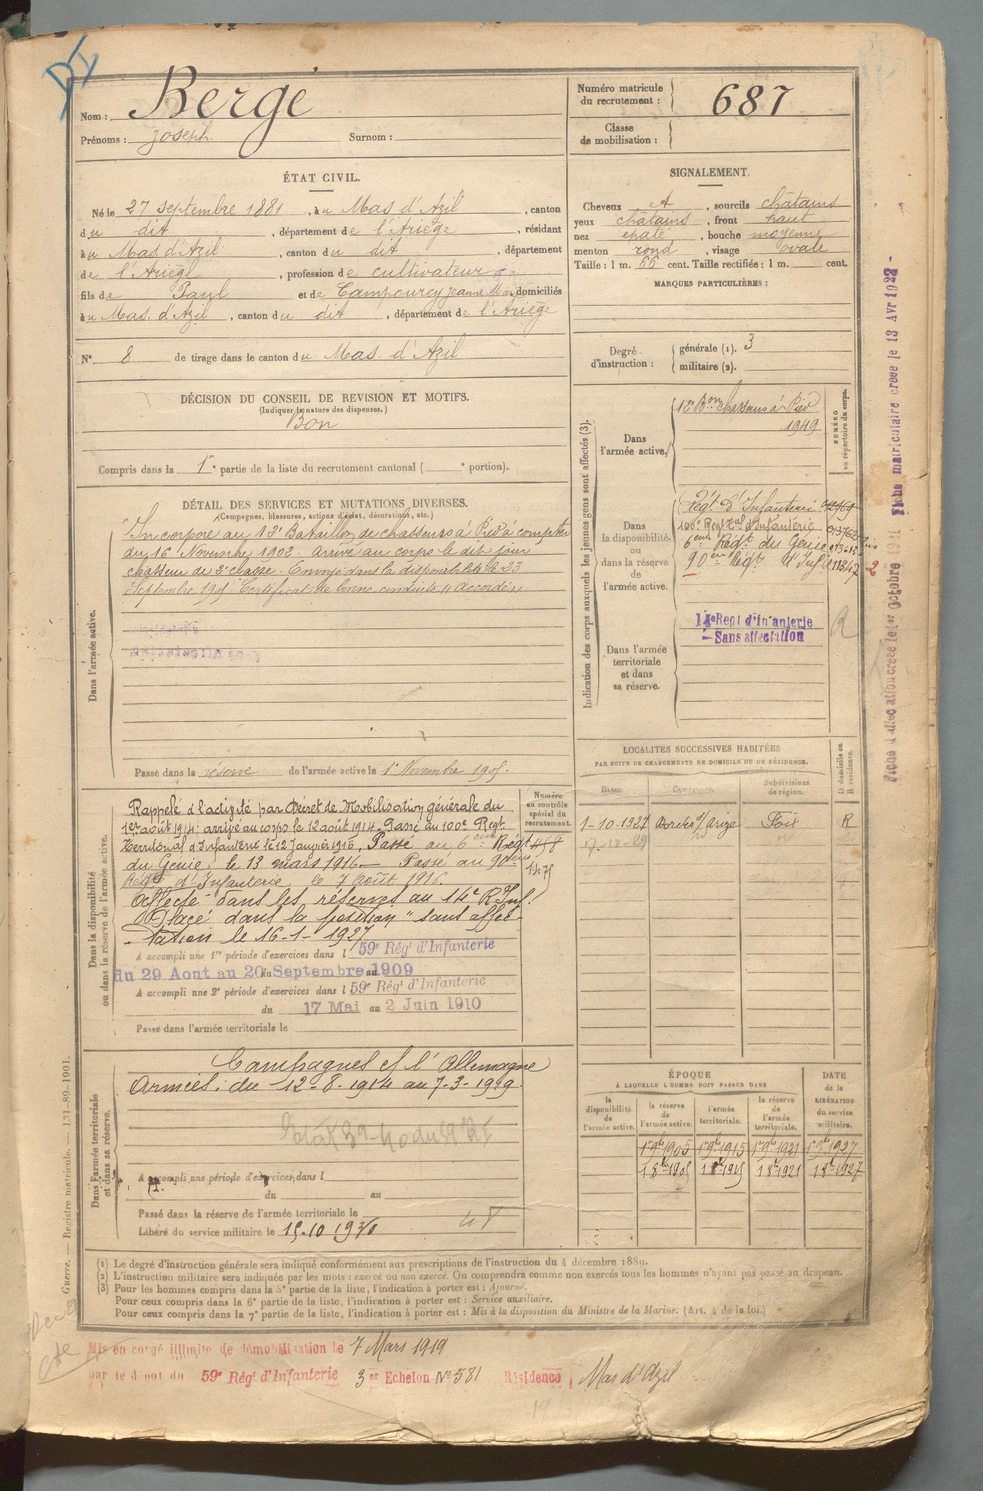 Nom : Bergé
Prénoms : Joseph Surnom :
Numéro matricule du recrutement : 687
Classe de mobilisation :
ÉTAT CIVIL.
Né le 27 septembre 1881, à u Mas d'Azil, canton
du dit, département de l'Ariège, résidant
à u Mas d'Azil, canton du dit, département
de l'Ariège, profession de cultivateur
fils de Paul et de Campourcy Jeanne domiciliés
à u Mas d'Azil, canton du dit, département de l'Ariège
N° 8 de tirage dans le canton du Mas d'Azil
SIGNALEMENT.
Cheveux , sourcils châtains
yeux châtains, front haut
nez epaté, bouche moyenne
menton rond, visage ovale
Taille : 1 m. 66 cent. Taille rectifiée : 1 m. cent.
MARQUES PARTICULIÈRES :
Degré d'instruction : générale (1). 3
militaire (2).
DÉCISION DU CONSEIL DE REVISION ET MOTIFS.
(Indiquer la nature des dispenses.)
Bon
Compris dans la 1e partie de la liste du recrutement cantonal ( e portion).
DÉTAIL DES SERVICES ET MUTATIONS DIVERSES.
(Campagnes, blessures, actions d'éclat, décorations, etc.)
Dans l'armée active.
Incorporé au Bataillon de chasseurs à Pied à compter
du 16 Novembre 1902. Arrivé au corps le dit jour
chasseur de 2e classe. Envoyé dans la disponibilité le 23
Septembre 1905. Certificat de bonne conduite "Accordé"
Passé dans la réserve de l'armée active le 1er Novembre 1905.
Indication des corps auxquels les jeunes gens sont affectés (3).
NUMÉRO au répertoire du corps.
Dans l'armée active.
Bon Chasseurs à Pied
1949
Dans la disponibilité ou dans la réserve de l'armée active.
Régt d'Infanterie
100e Régt Tal d'Infanterie
6eme Régt du Génie
90eme Régt d'Infie
14e Régt d'Infanterie
Sans affectation
Dans l'armée territoriale et dans sa réserve.
R
Fiche matriculaire créée le 13 Avr 1922
LOCALITÉS SUCCESSIVES HABITÉES
PAR SUITE DE CHANGEMENTS DE DOMICILE OU DE RÉSIDENCE.
Dates. Communes. Subdivisions de région. D domicile ou R résidence.
1-10-1927 Foix R
Dans la disponibilité ou dans la réserve de l'armée active.
Numéro au contrôle spécial du recrutement.
Rappelé à l'activité par Décret de Mobilisation générale du
1er août 1914; arrivé au corps le 12 août 1914. Passé au 100e Régt
Territorial d'Infanterie le 12 Janvier 1916. Passé au 6eme Régt
du Génie, le 13 mars 1916. Passé au 90eme
Régt d'Infanterie le 7 août 1916.
Affecté dans les réserves au 14e R. Inf.
Placé dans la position "sans affec
tation le 16-1-1927
A accompli une 1re période d'exercices dans l 59e Régt d'Infanterie
du 29 Aout au 20 Septembre 1909
A accompli une 2e période d'exercices dans l 59e Régt d'Infanterie
du 17 Mai au 2 Juin 1910
Passé dans l'armée territoriale le
Dans l'armée territoriale et dans sa réserve.
Campagnes c/ l'Allemagne
Armées : du 12-8-1914 au 7-3-1919
A accompli une période d'exercices dans l
du au
Passé dans la réserve de l'armée territoriale le
Libéré du service militaire le
ÉPOQUE
À LAQUELLE L'HOMME DOIT PASSER DANS
DATE de la LIBÉRATION du service militaire.
la disponibilité de l'armée active. la réserve de l'armée active. l'armée territoriale. la réserve de l'armée territoriale.
1er 9bre 1905 1er 9bre 1915 1er 9bre 1921 1er 9bre 1927
1 8bre 1905 1 8bre 1915 1 8bre 1921 1 8bre 1927
(1) Le degré d'instruction générale sera indiqué conformément aux prescriptions de l'instruction du 4 décembre 1889.
(2) L'instruction militaire sera indiquée par les mots : exercé ou non exercé. On comprendra comme non exercés tous les hommes n'ayant pas passé au drapeau.
(3) Pour les hommes compris dans la 5e partie de la liste, l'indication à porter est : Ajourné.
Pour ceux compris dans la 6e partie de la liste, l'indication à porter est : Service auxiliaire.
Pour ceux compris dans la 7e partie de la liste, l'indication à porter est : Mis à la disposition du Ministre de la Marine. (Art. 4 de la loi.)
Guerre. — Registre matricule. — 131-89-1901.
Mis en congé illimité de démobilisation le 7 Mars 1919
par le dépôt du 59e Régt d'Infanterie 3er Echelon N° 581 Résidence Mas d'Azil